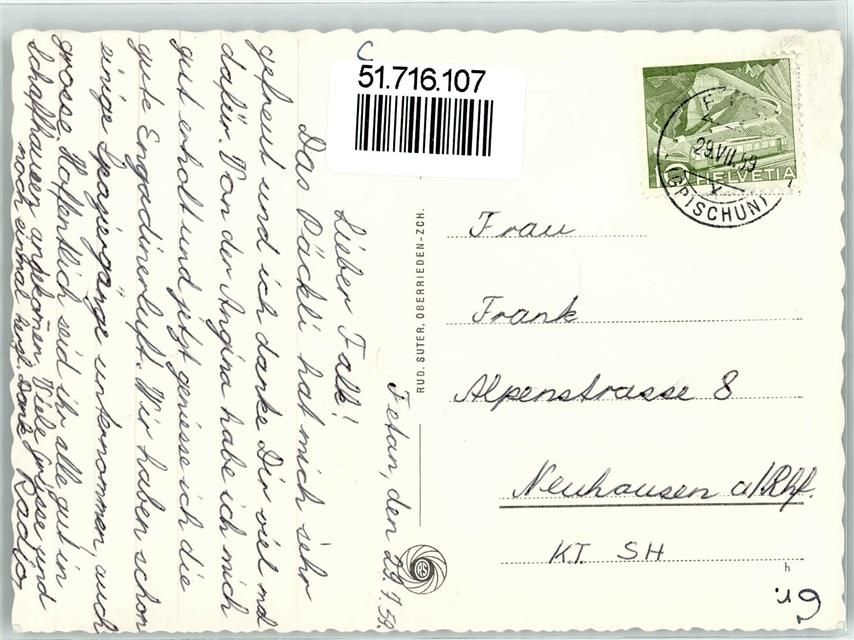 51.716.107
Fetan, den 29.7.59.
Lieber Falk!
Das Päckli hat mich sehr
gefreut und ich danke Dir viel mal
dafür. Von der Angina habe ich mich
gut erholt und jetzt geniesse ich die
gute Engadinerluft. Wir haben schon
einige Spaziergänge unternommen, auch
grosse. Hoffentlich seid ihr alle gut in
Schaffhausen angekommen. Viele Grüsse und
noch einmal herzl. Dank
RUD. SUTER, OBERRIEDEN-ZCH.
RS
10 HELVETIA
29.VII.59
(GP(SCHUN)
Frau
Frank
Alpenstrasse 8
Neuhausen a/Rhf.
KT. SH
h